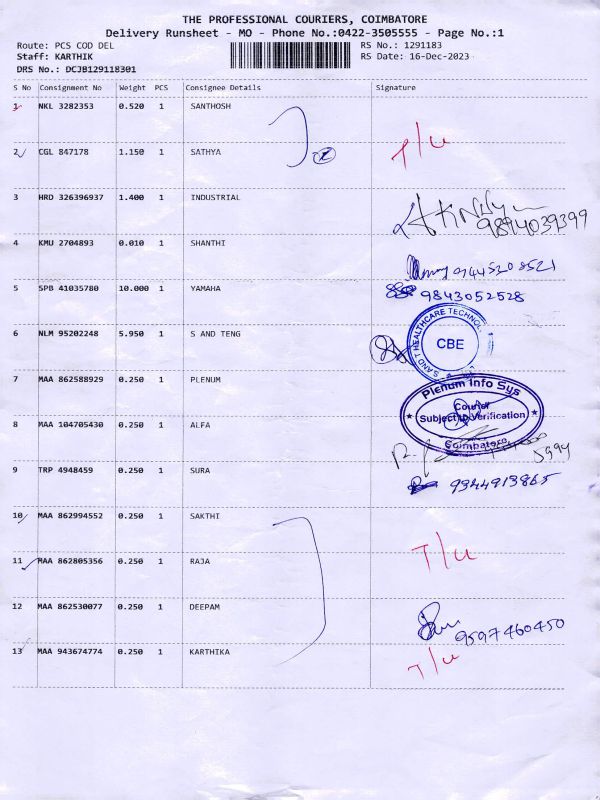 THE PROFESSIONAL COURIERS, COIMBATORE
Delivery Runsheet - MO - Phone No.:0422-3505555 - Page No.:1
Route: PCS COD DEL
RS No.: 1291183
Staff: KARTHIK
RS Date: 16-Dec-2023
DRS No.: DCJB129118301
S No Consignment No Weight PCS Consignee Details Signature
1 NKL 3282353 0.520 1 SANTHOSH
T/u
2 CGL 847178 1.150 1 SATHYA
3 HRD 326396937 1.400 1 INDUSTRIAL
9894039399
4 KMU 2704893 0.010 1 SHANTHI
9344520 8521
5 SPB 41035780 10.000 1 YAMAHA 9843052528
6 NLM 95202248 5.950 1 S AND TENG
SAND T HEALTHCARE TECHNOLO
CBE
7 MAA 862588929 0.250 1 PLENUM
Plenum Info Sys
Courier
Subject to Verification
Coimbatore
8 MAA 104705430 0.250 1 ALFA
9 TRP 4948459 0.250 1 SURA 9344913865
10 MAA 862994552 0.250 1 SAKTHI
11 MAA 862805356 0.250 1 RAJA
T/u
12 MAA 862530077 0.250 1 DEEPAM
9597460450
13 MAA 943674774 0.250 1 KARTHIKA
T/u